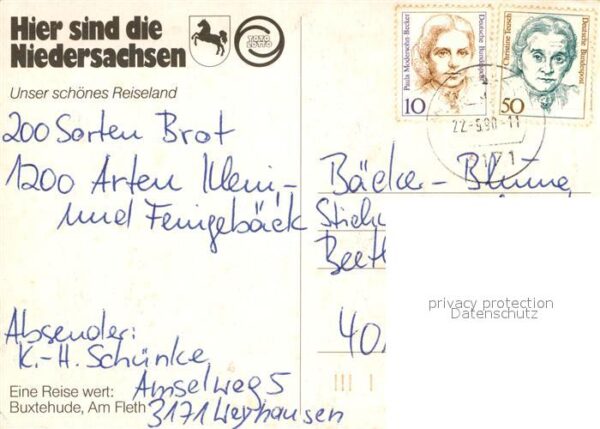 Hier sind die
Niedersachsen
TOTO
LOTTO
Unser schönes Reiseland
200 Sorten Brot
1200 Arten Klein-
und Feingebäck
Absender:
K.-H. Schünke
Amselweg 5
3171 Weyhausen
Eine Reise wert:
Buxtehude, Am Fleth
Paula Modersohn-Becker
Deutsche Bundespost
10
Christine Teusch
Deutsche Bundespost
50
22.-5.90-11
3171
Bäcker-Blume
Beet
40
privacy protection
Datenschutz